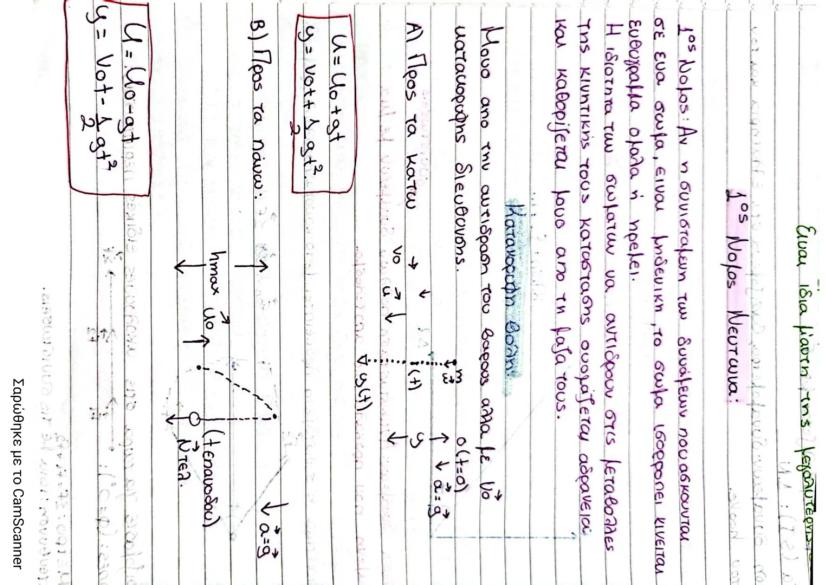 Ειναι ίδια μ'αυτη της μεγαλυτερης
1ος Νομος Νευτωνα:
1ος Νομος: Αν η συνισταμενη των δυνάμεων που ασκουνται
σε ενα σωμα, ειναι μηδενικη, το σωμα ισορροπει κινειται
ευθυγραμμα ομαλα ή ηρεμει.
Η ιδιοτητα των σωματων να αντιδρουν στις μεταβολλες
της κινητικης τους καταστασης ονομάζεται αδρανεια
και καθορίζεται μονο απο τη μαζα τους.
Κατακορυφη βολη:
Μονο απο την αντιδραση του βαρους αλλα με Vo
κατακορυφης διευθυνσης.
Α) Προς τα κατω
Vo
u
m
(t)
y(t)
0(t=0)
y
a=g
u=uo+gt
y=Vot+1/2gt²
Β) Προς τα πάνω:
hmax
uo
(tεπανοδου)
Vτελ.
a=g
u=uo-gt
y=Vot-1/2gt²
Σαρώθηκε με το CamScanner